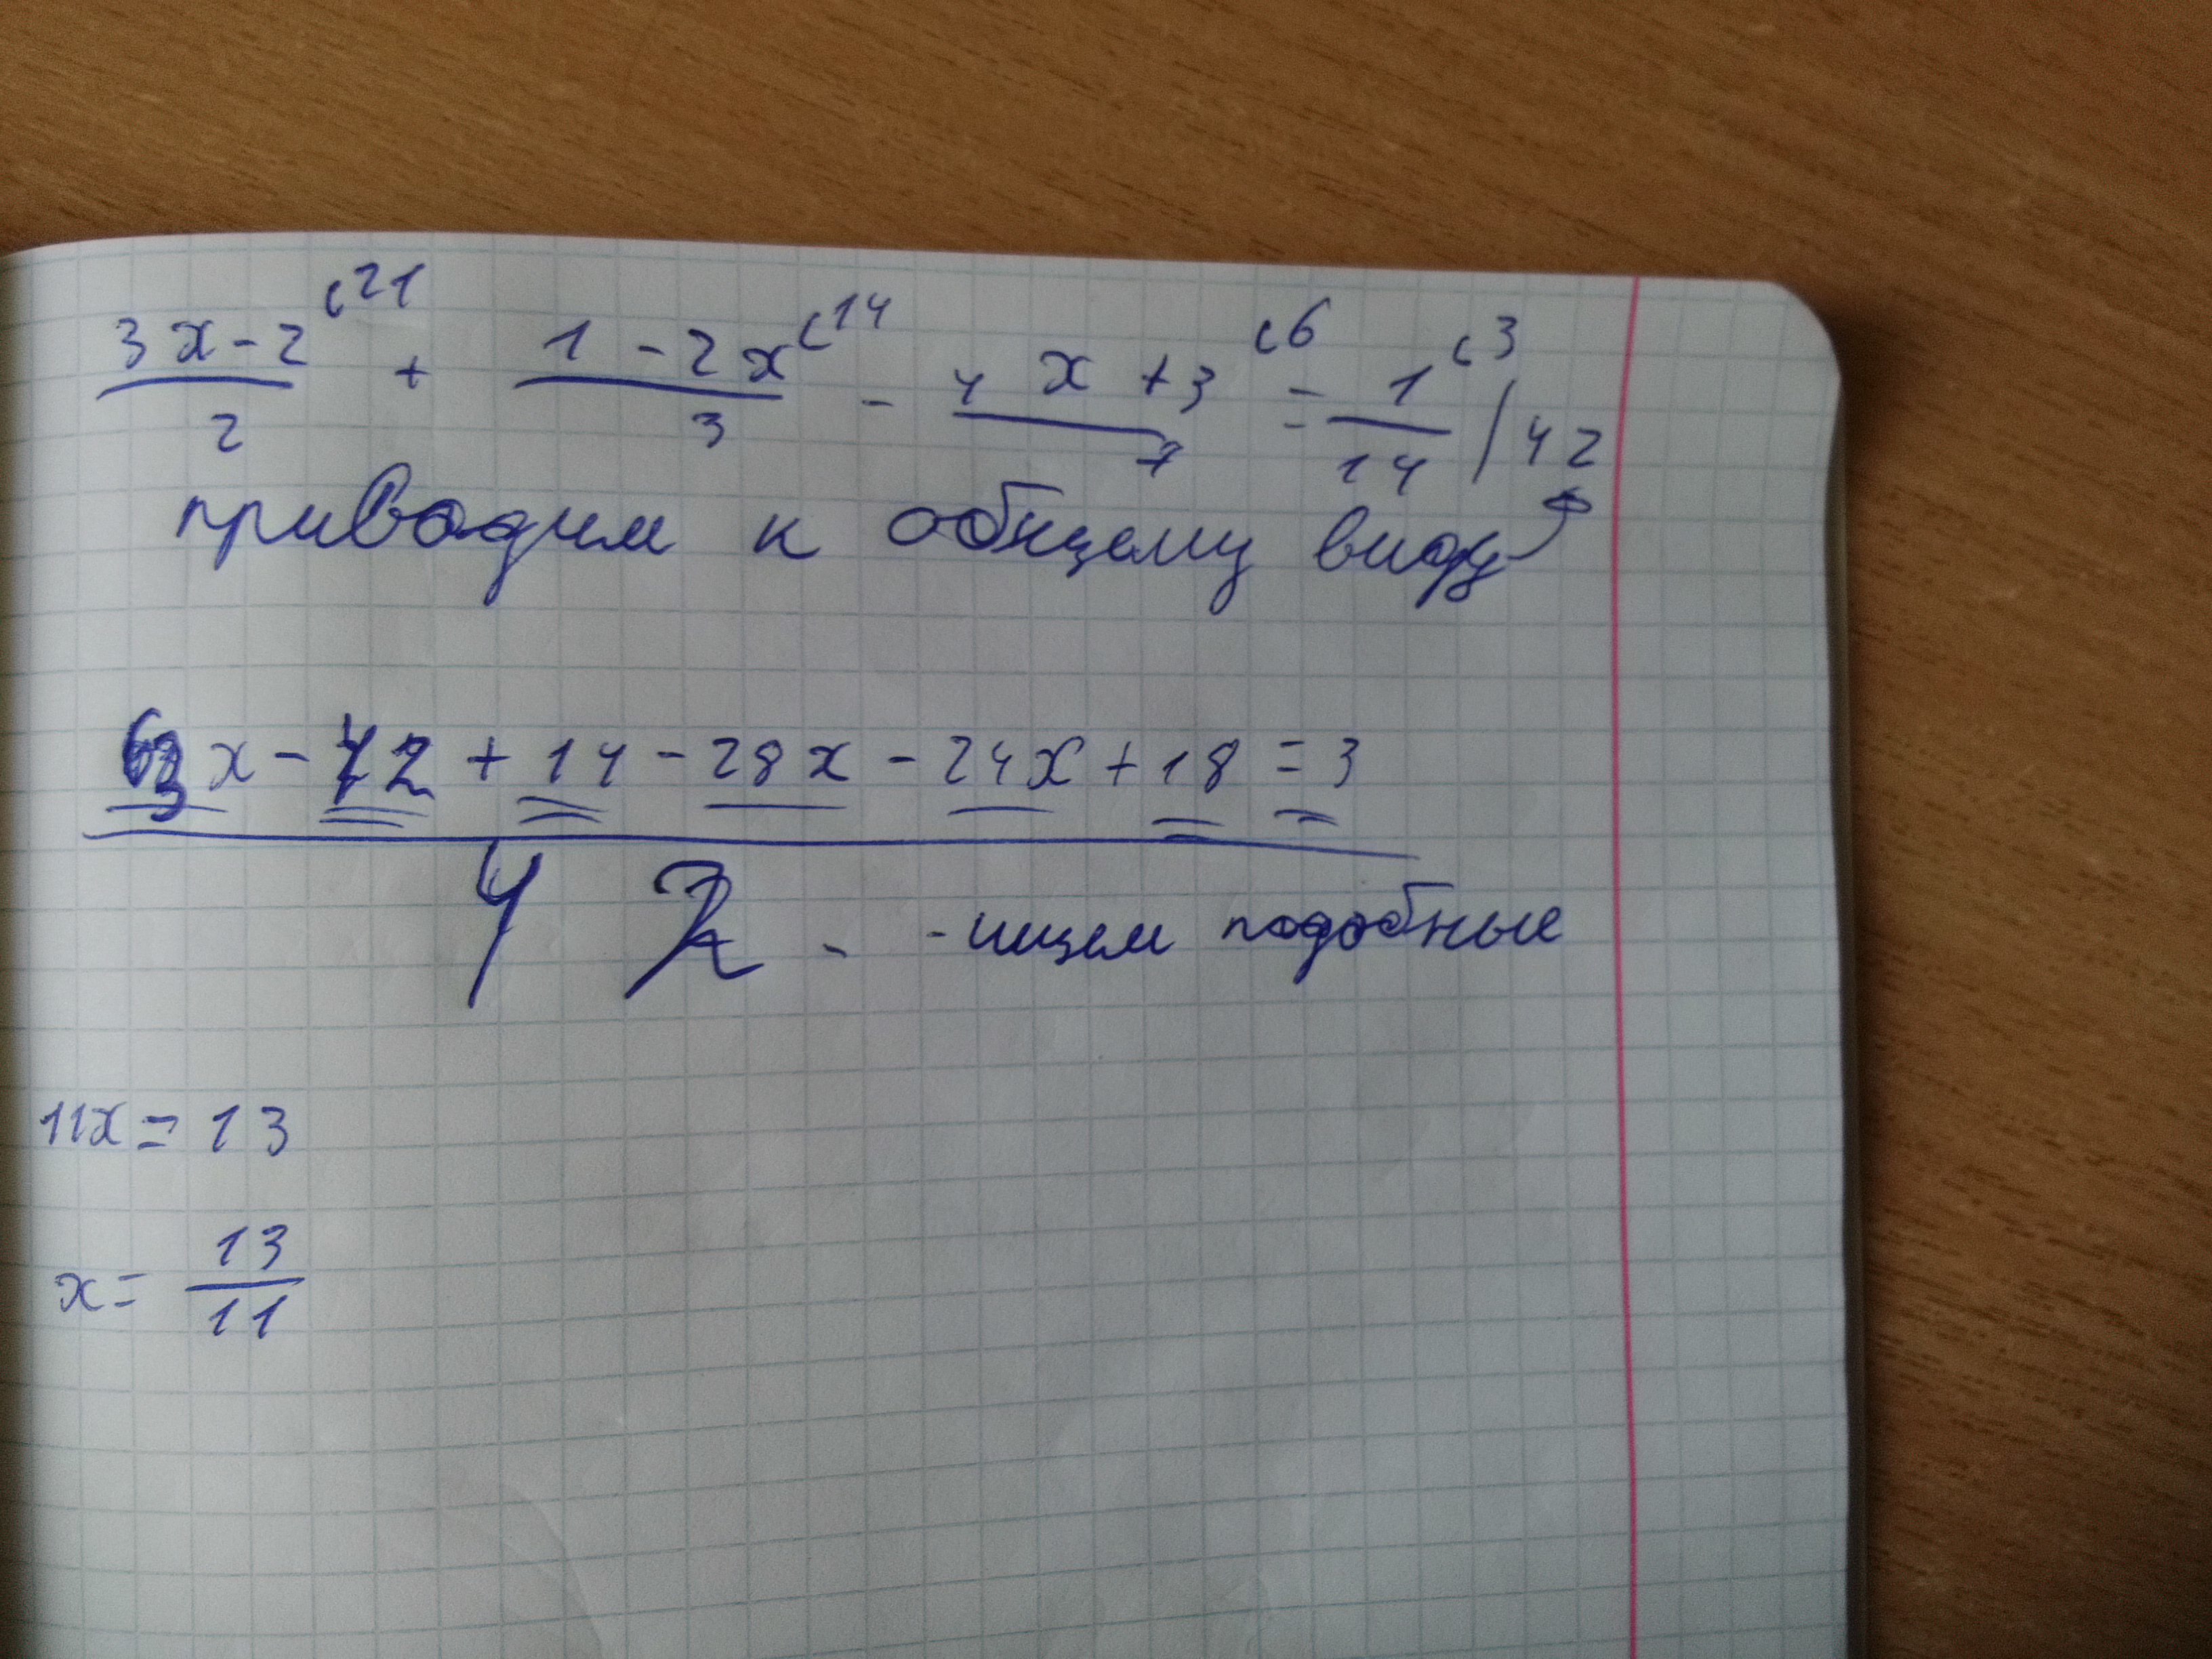 3x-2 ⁽²¹ + 1-2x ⁽¹⁴ - 4x+3 ⁽⁶ = 1 ⁽³ / 42
2 3 7 14
приводим к общему виду
63x - 42 + 14 - 28x - 24x + 18 = 3
42 - - ищем подобные
11x = 13
x = 13
11